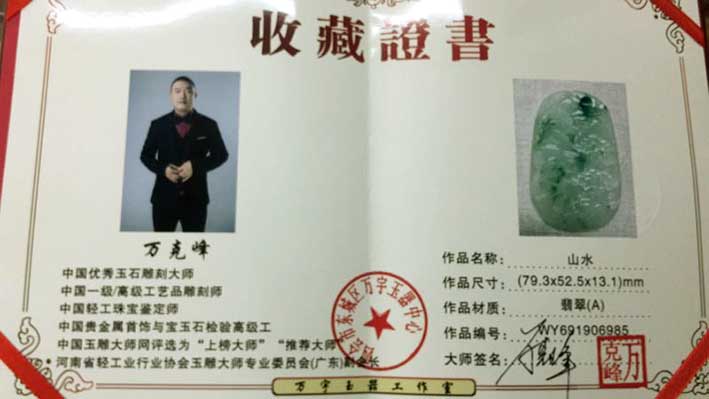 收藏證書
万克峰
中国优秀玉石雕刻大师
中国一级/高级工艺品雕刻师
中国轻工珠宝鉴定师
中国贵金属首饰与宝玉石检验高级工
中国玉雕大师网评选为“上榜大师”“推荐大师”
河南省轻工业行业协会玉雕大师专业委员会(广东)副会长
作品名称： 山水
作品尺寸： (79.3x52.5x13.1)mm
作品材质： 翡翠(A)
作品编号： WY691906985
大师签名：
万克峰
市东城区万字玉器中心
万字玉器工作室